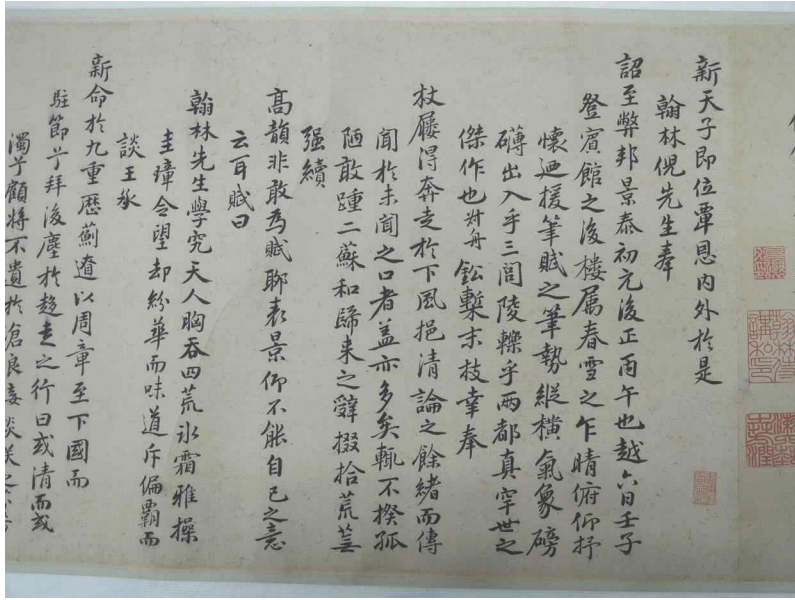 新天子即位覃恩内外於是
翰林倪先生奉
詔至弊邦景泰初元後正丙午也越六日壬子
登賓館之後樓属春雪之乍晴俯仰抒
懷迺援筆賦之筆勢縱橫氣象磅
礡出入乎三閭陵轢乎兩都真罕世之
傑作也叔舟鈆槧末技幸奉
杖屨淂奔走於下風挹清論之餘緒而傳
聞於未聞之口者盖亦多矣輒不揆孤
陋敢踵二蘇和歸来之辝掇拾荒蕪
强續
高韻非敢為賦聊表景仰不能自已之意
云耳賦曰
翰林先生學究天人胸吞四荒氷霜雅操
圭璋令望却紛華而味道斥偏霸而
談王承
新命於九重歷薊遼以周章至下國而
駐節兮拜後塵於趍走之行曰或清而或
濁兮顧將不遺於滄浪